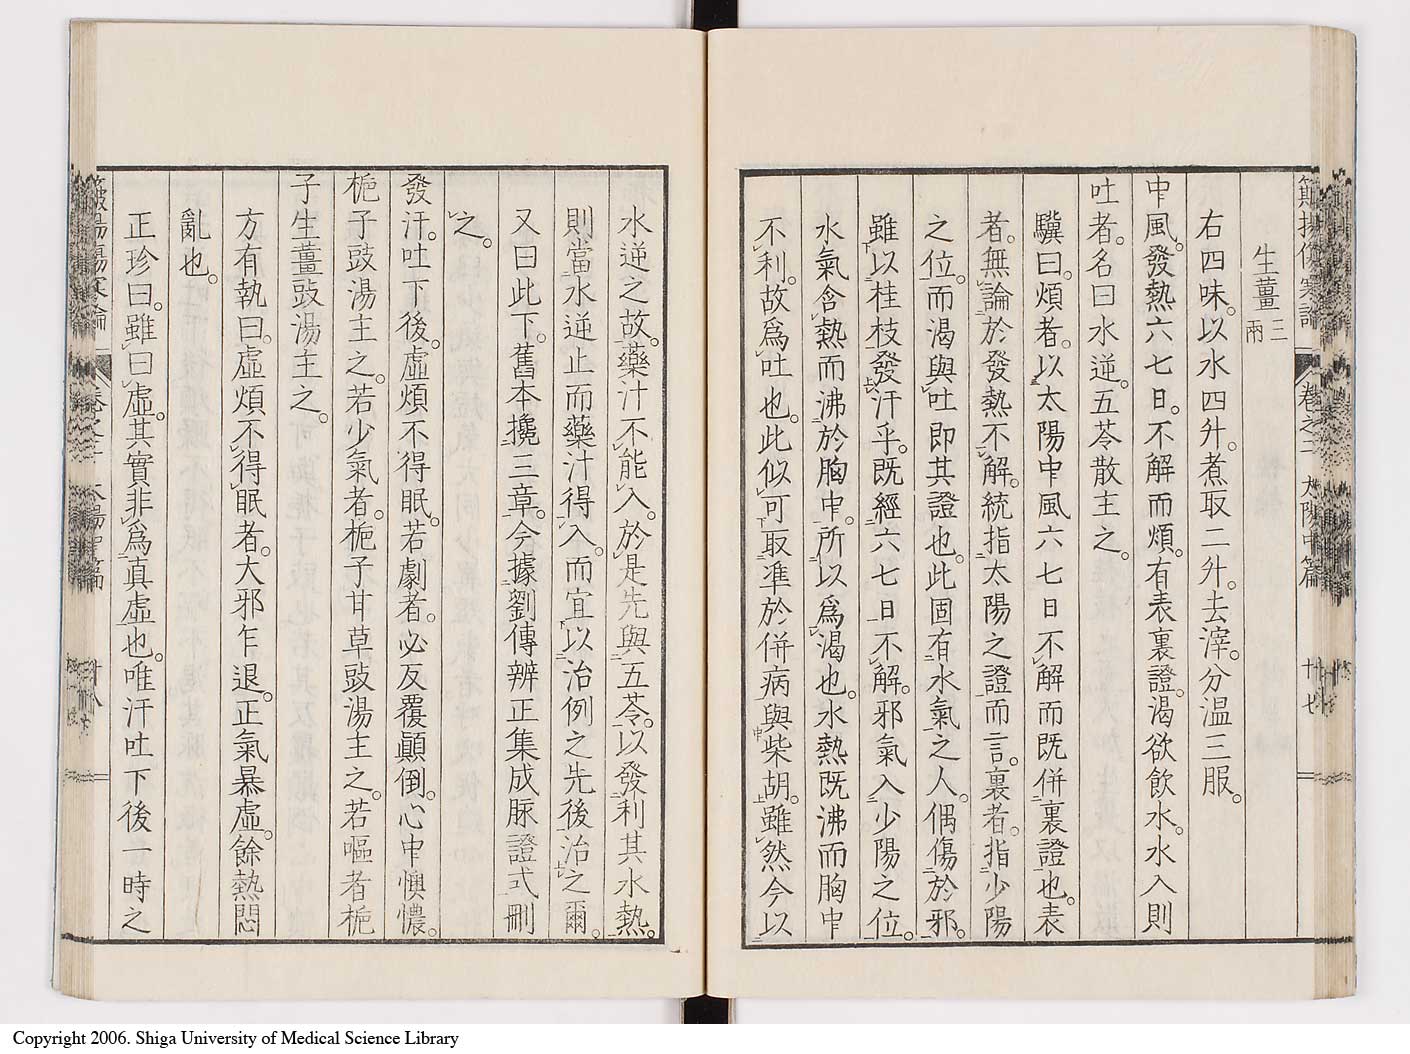 生薑三兩
右四味。以水四升。煮取二升。去滓。分温三服。
中風。發熱六七日。不解而煩。有表裏證。渴欲飲水。水入則
吐者。名曰水逆。五苓散主之。
驥曰。煩者。以太陽中風六七日不解而既併裏證也。表
者。無論於發熱不解。統指太陽之證而言。裏者。指少陽
之位。而渴與吐即其證也。此固有水氣之人。偶傷於邪。
雖以桂枝發汗乎。既經六七日不解。邪氣入少陽之位。
水氣含熱而沸於胸中。所以爲渴也。水熱既沸而胸中
不利。故爲吐也。此似可取準於併病與柴胡。雖然今以
卷之二 太陽中篇 十七
水逆之故。藥汁不能入。於是先與五苓。以發利其水熱。
則當水逆止而藥汁得入。而宜以治例之先後治之爾。
又曰此下。舊本攙三章。今據劉傳辨正集成脉證式刪
之。
發汗。吐下後。虛煩不得眠。若劇者。必反覆顚倒。心中懊憹。
梔子豉湯主之。若少氣者。梔子甘草豉湯主之。若嘔者梔
子生薑豉湯主之。
方有執曰。虛煩不得眠者。大邪乍退。正氣暴虛。餘熱悶
亂也。
正珍曰。雖曰虛。其實非爲眞虛也。唯汗吐下後一時之